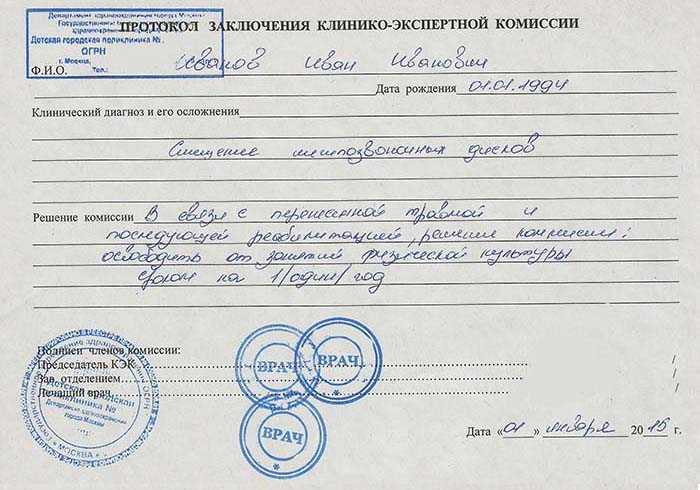 Департамент здравоохранения города Москвы
ПРОТОКОЛ ЗАКЛЮЧЕНИЯ КЛИНИКО-ЭКСПЕРТНОЙ КОМИССИИ
Детская городская поликлиника №
ОГРН
г. Москва, Тел.:
Ф.И.О. Иванов Иван Иванович
Дата рождения 01.01.1994
Клинический диагноз и его осложнения
Смещение межпозвоночных дисков
Решение комиссии В связи с перенесенной травмой и
последующей реабилитацией, решение комиссии:
освободить от занятий физической культуры
сроком на 1/один/ год
Подписи членов комиссии:
Председатель КЭК
Зав. отделением
Лечащий врач
Детская городской
поликлиника №
Департамент здравоохранения
города Москвы
* МОСКВА *
ВРАЧ
ВРАЧ
ВРАЧ
Дата «01» января 2015 г.